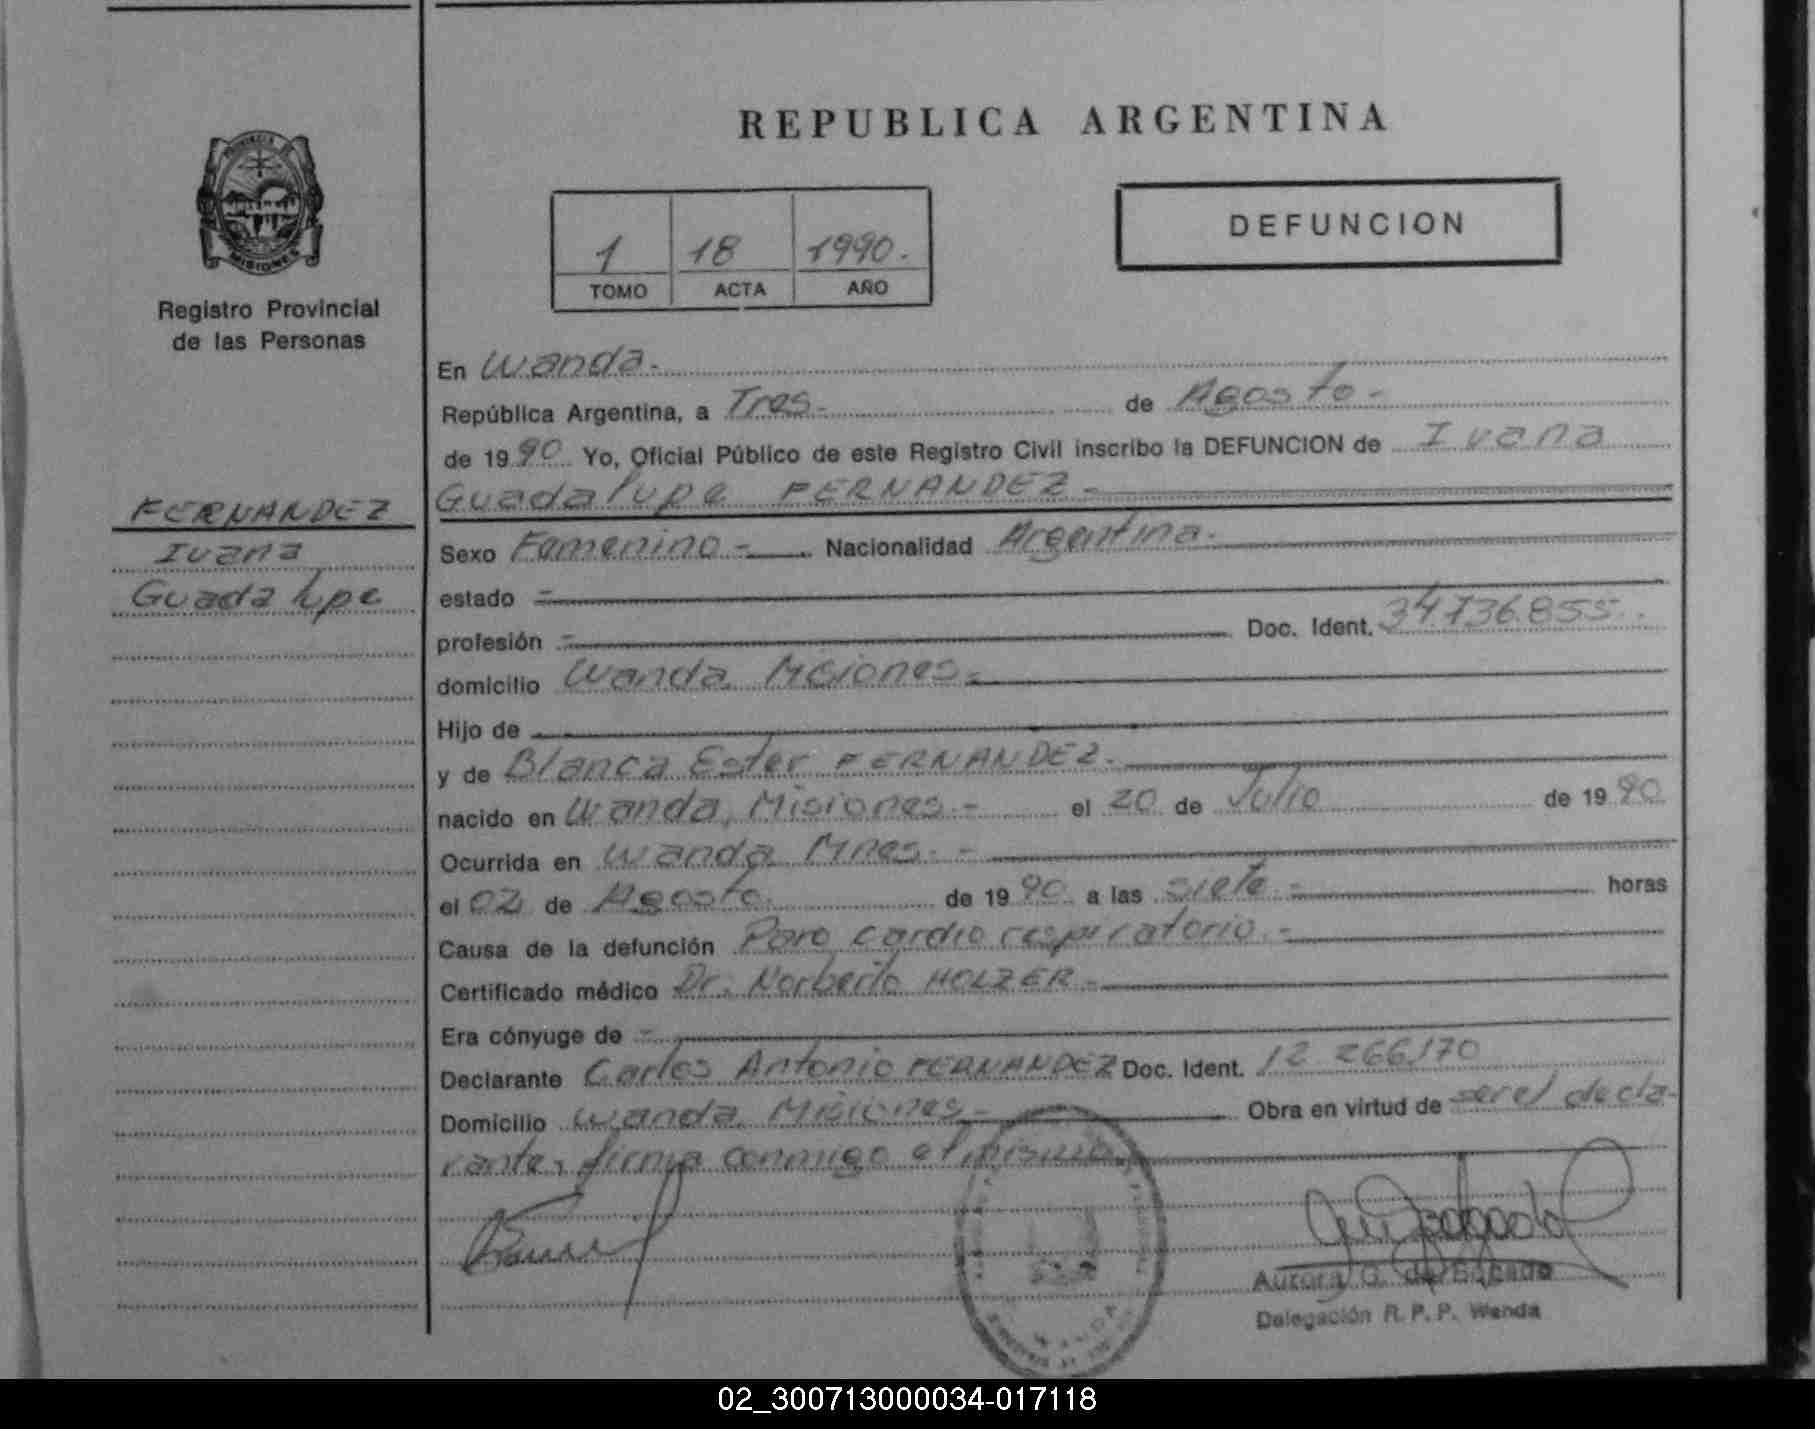 REPUBLICA ARGENTINA
DEFUNCION
1 18 1990.
TOMO ACTA AÑO
MISIONES
Registro Provincial
de las Personas
FERNANDEZ
Ivana
Guadalupe
En Wanda.
República Argentina, a Tres.- de Agosto.-
de 1990 Yo, Oficial Público de este Registro Civil inscribo la DEFUNCION de Ivana
Guadalupe FERNANDEZ.-
Sexo Femenino.- Nacionalidad Argentina.-
estado -
profesión - Doc. Ident. 34.736.855.
domicilio Wanda, Misiones.-
Hijo de
y de Blanca Ester FERNANDEZ.-
nacido en Wanda, Misiones.- el 20 de Julio de 1990
Ocurrida en Wanda Mnes.-
el 02 de Agosto. de 1990 a las siete.- horas
Causa de la defunción Paro cardio respiratorio.-
Certificado médico Dr. Norberto HOLZER.-
Era cónyuge de -
Declarante Carlos Antonio FERNANDEZ Doc. Ident. 12 266170
Domicilio Wanda, Misiones.- Obra en virtud de ser el decla-
rante, firma conmigo el mismo.
Aurora G. de
Delegación R. P. P. Wanda
WANDA
02_300713000034-017118